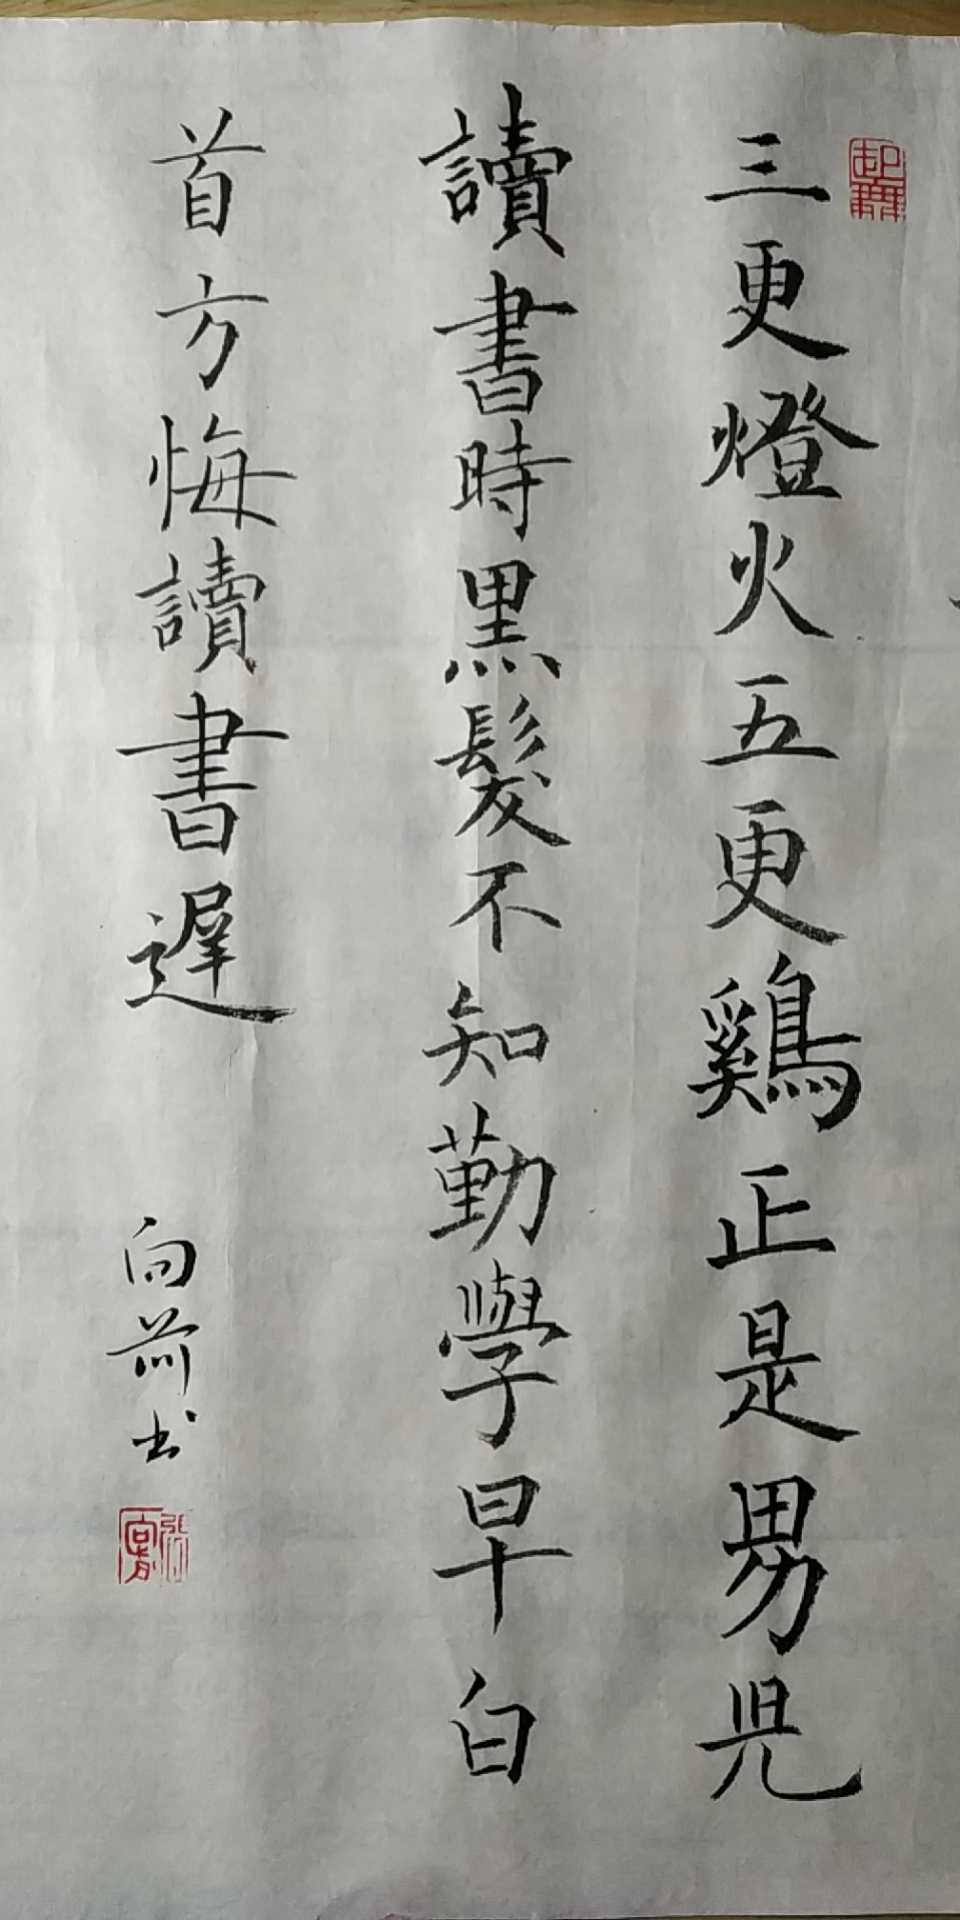 三更燈火五更鷄正是男兒
讀書時黑髮不知勤學早白
首方悔讀書遲
向前书